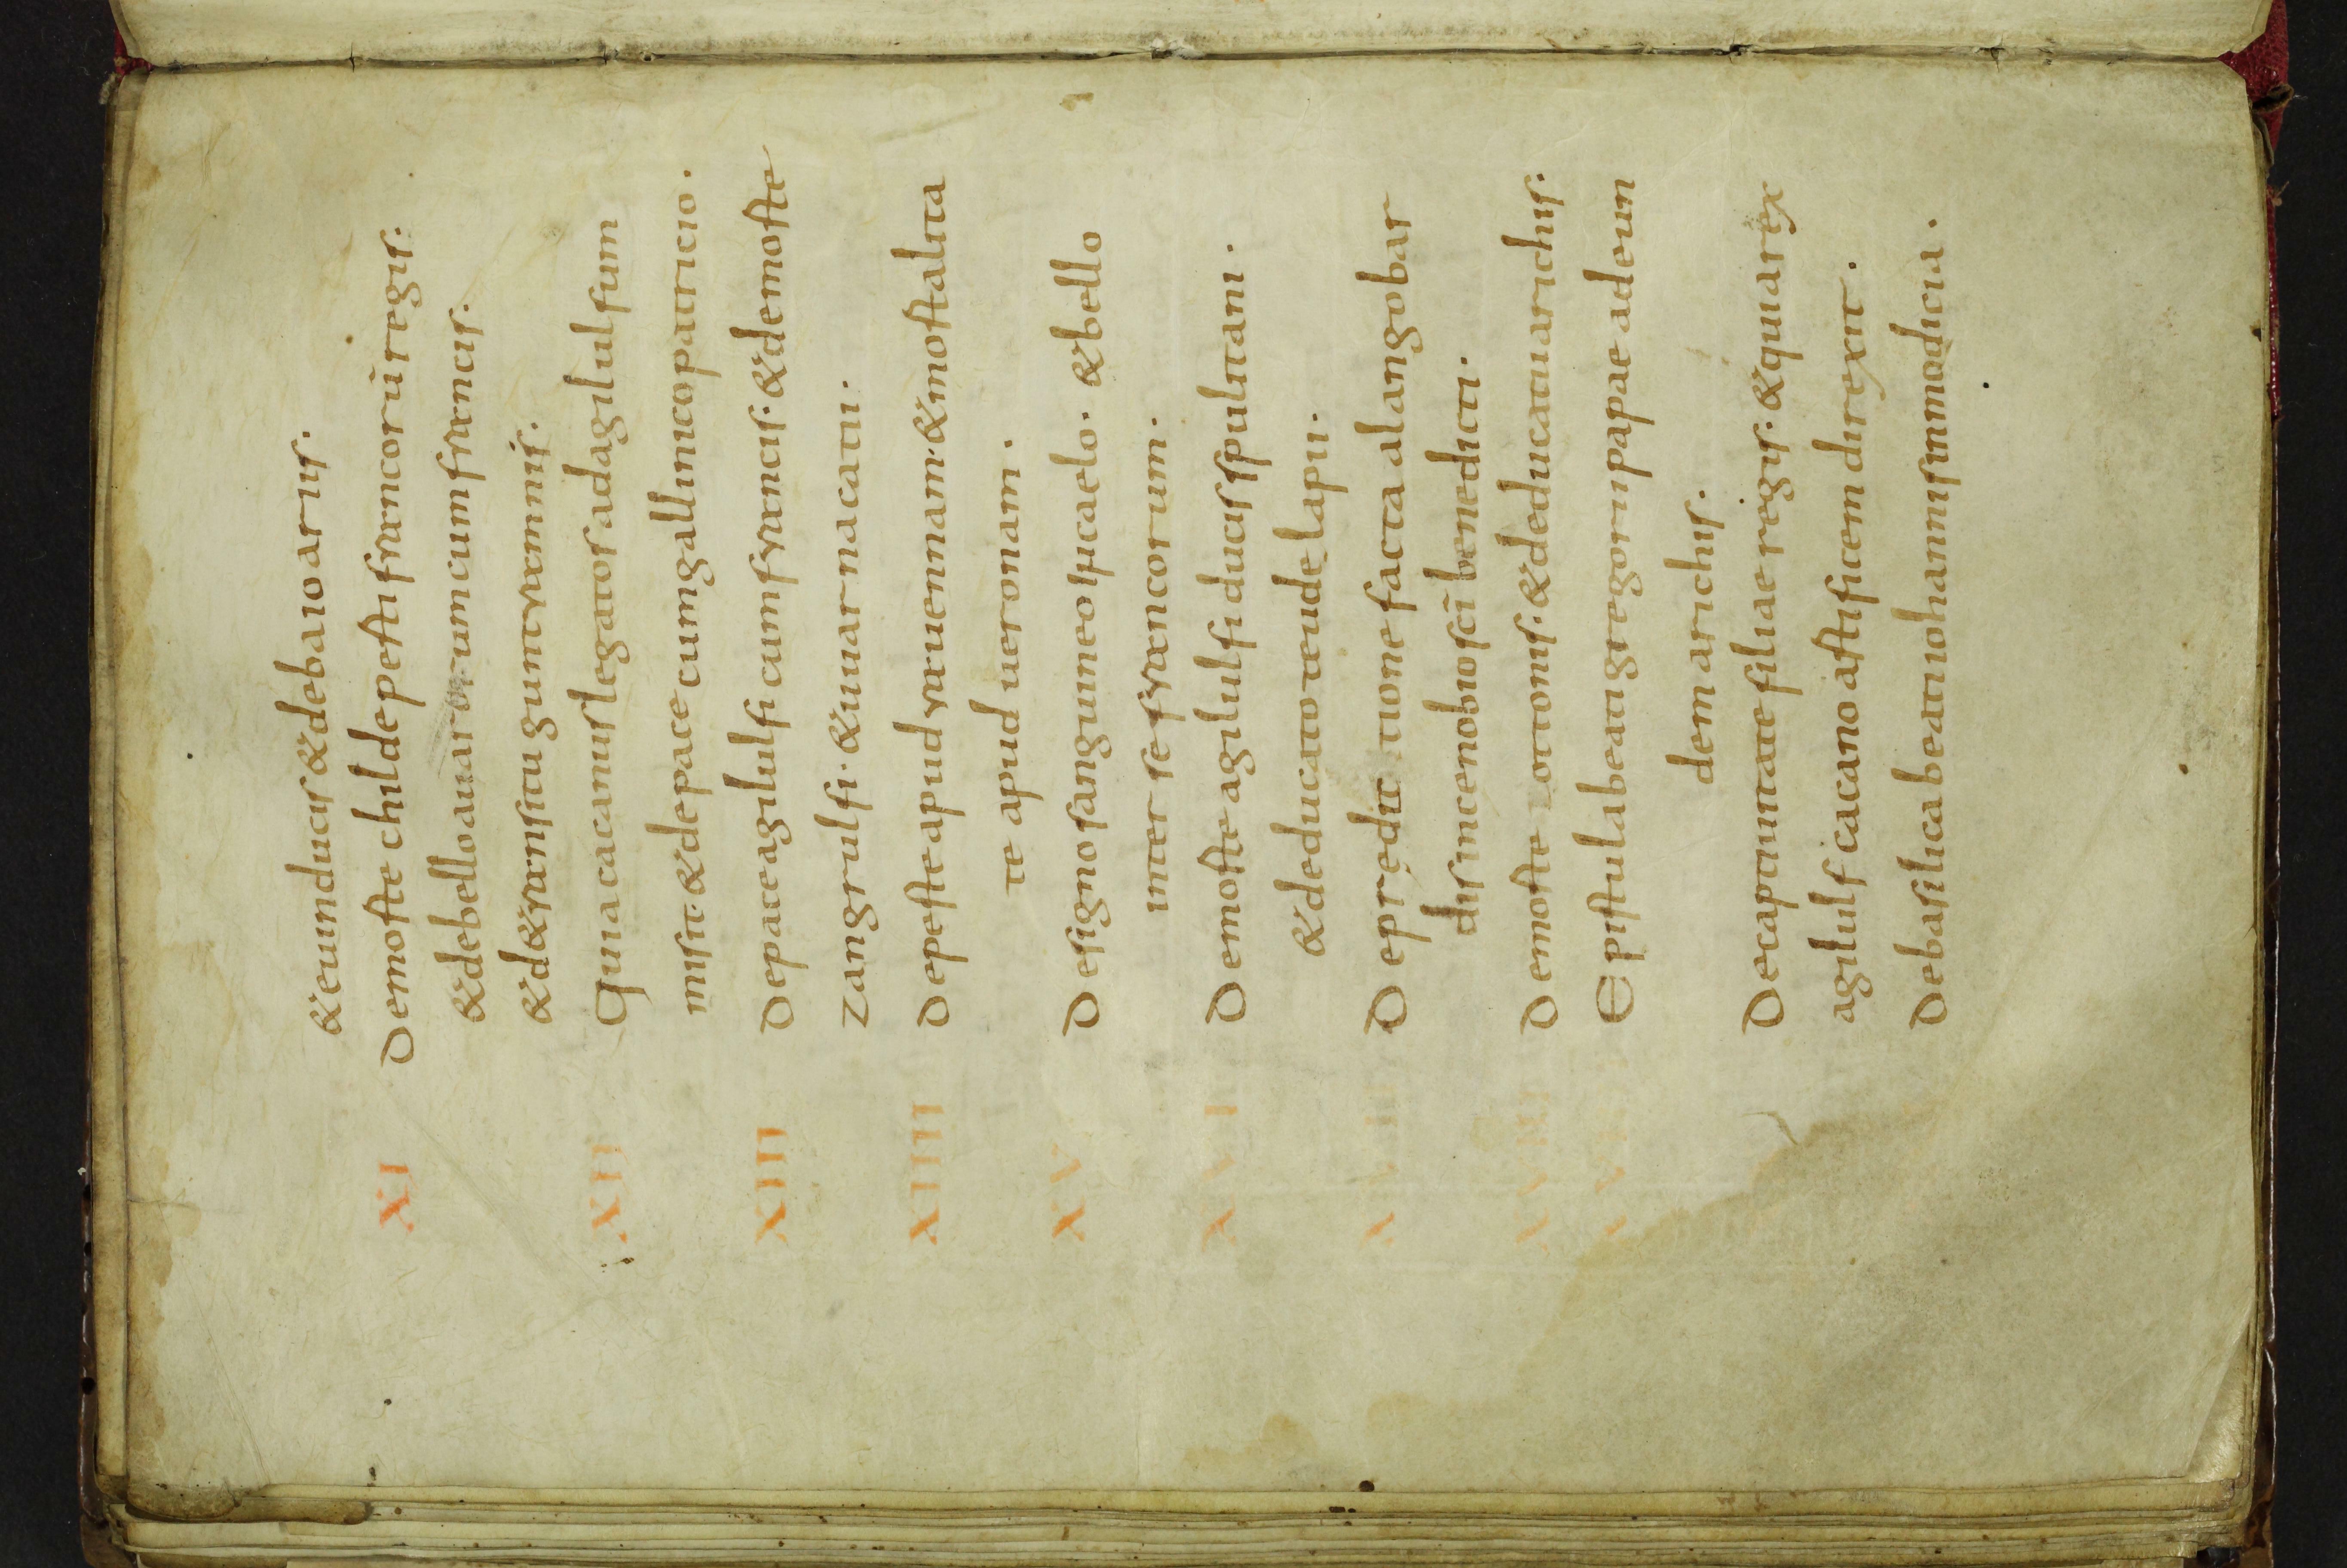 & euin ducis & de baioariis.
XI De moste childepesti francorū regis.
& de bello auarorum cum francis.
& de & transitu gunt rammis.
XII Quia cacanus legatos ad agilulfum
misit. & de pace cum gallinico patricio.
XIII De pace agilulfi cum francis. & de moste
zangrulfi. & uuarnacatii.
XIIII De peste apud rauennam. & mostalita
te apud ueronam.
XV De signo sanguineo in caelo. & bello
inter se francorum.
XVI De moste agilulfi ducis spulitani.
& de ducato teudelapii.
De predic tione facta a langobar
dis in cenobio scī benedicti.
De moste zottonis. & de ducatu arichis.
Epistula beati gregorii papae ad eun
dem arichis.
De captiuitate filiae regis. & quia rex
agilulf cacano astificem direxit.
De basilica beati iohannis in modicia.